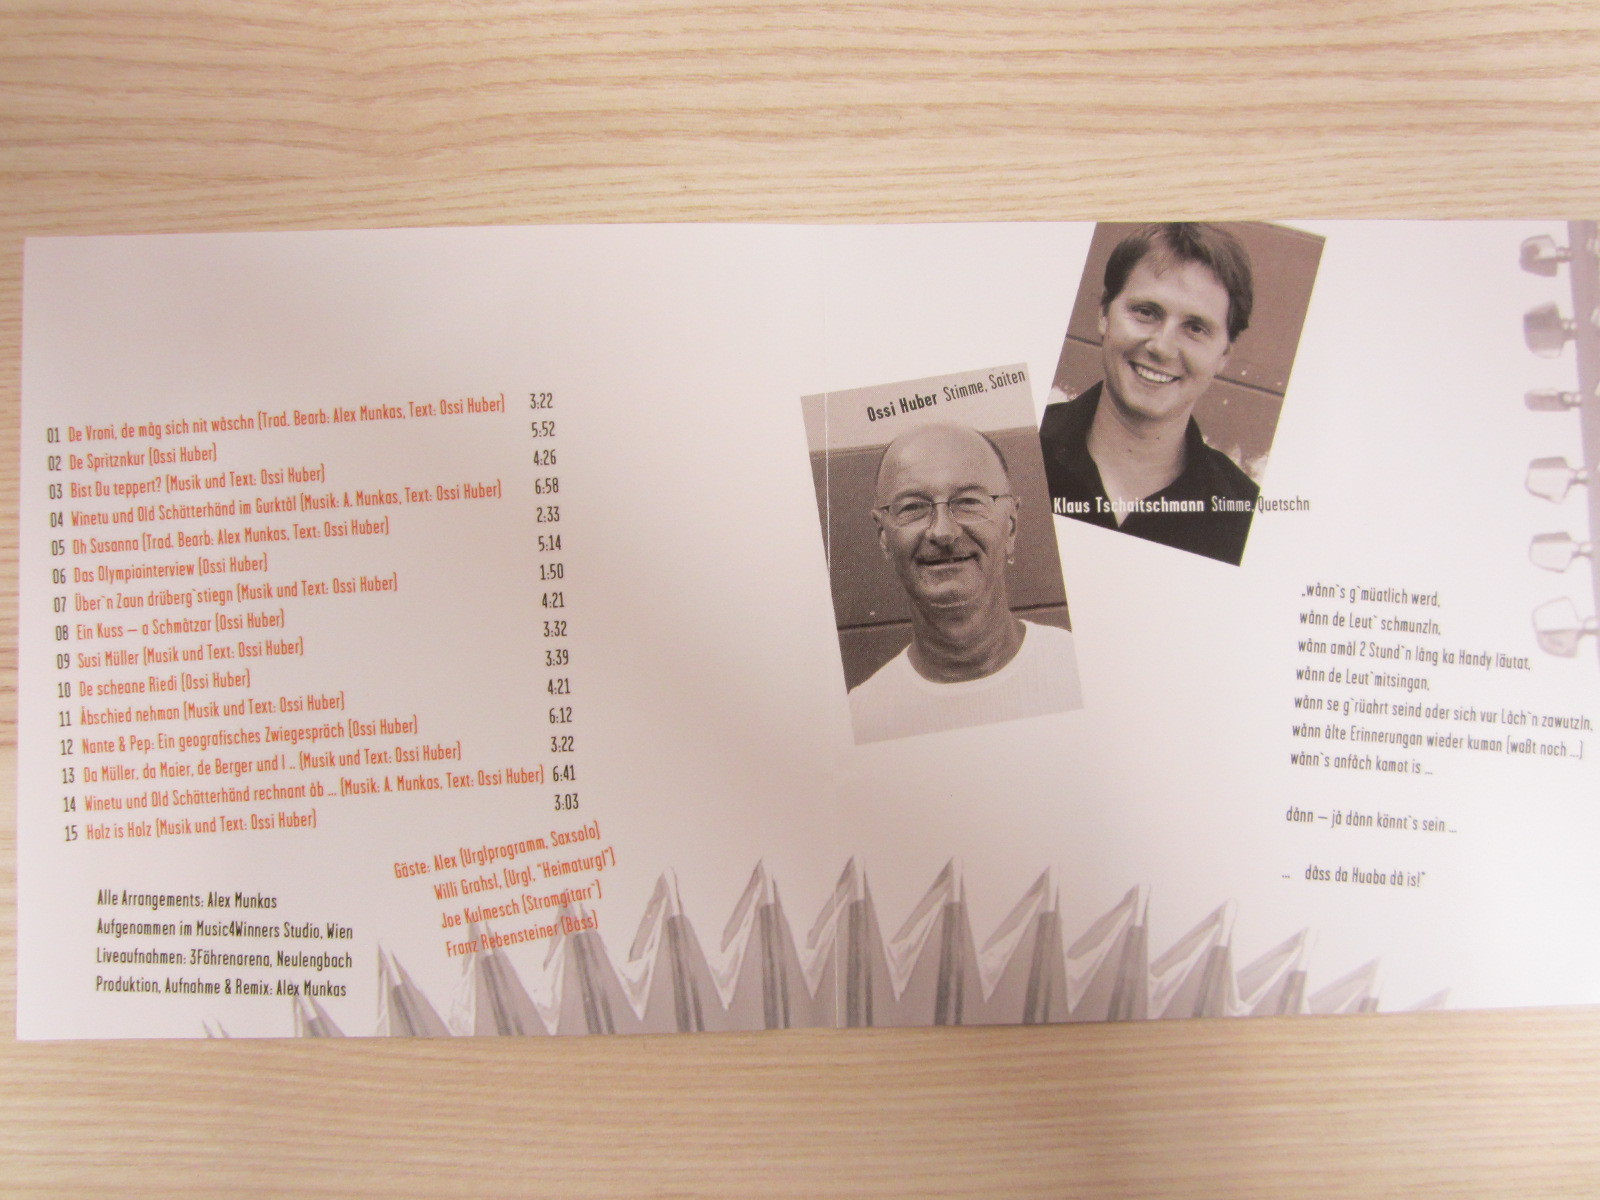 01 De Vroni, de måg sich nit wåschn (Trad. Bearb: Alex Munkas, Text: Ossi Huber) 3:22
02 De Spritznkur (Ossi Huber) 5:52
03 Bist Du teppert? (Musik und Text: Ossi Huber) 4:26
04 Winetu und Old Schåtterhånd im Gurktål (Musik: A. Munkas, Text: Ossi Huber) 6:58
05 Oh Susanna (Trad. Bearb: Alex Munkas, Text: Ossi Huber) 2:33
06 Das Olympiainterview (Ossi Huber) 5:14
07 Über`n Zaun drüberg`stiegn (Musik und Text: Ossi Huber) 1:50
08 Ein Kuss – a Schmåtzar (Ossi Huber) 4:21
09 Susi Müller (Musik und Text: Ossi Huber) 3:32
10 De scheane Riedi (Ossi Huber) 3:39
11 Åbschied nehman (Musik und Text: Ossi Huber) 4:21
12 Nante & Pep: Ein geografisches Zwiegespräch (Ossi Huber) 6:12
13 Da Müller, da Maier, de Berger und I .. (Musik und Text: Ossi Huber) 3:22
14 Winetu und Old Schåtterhånd rechnant åb ... (Musik: A. Munkas, Text: Ossi Huber) 6:41
15 Holz is Holz (Musik und Text: Ossi Huber) 3:03
Gäste: Alex (Urglprogramm, Saxsolo)
Willi Grahsl, (Urgl, "Heimaturgl")
Joe Kulmesch (Stromgitarr`)
Franz Rebensteiner (Båss)
Alle Arrangements: Alex Munkas
Aufgenommen im Music4Winners Studio, Wien
Liveaufnahmen: 3Föhrenarena, Neulengbach
Produktion, Aufnahme & Remix: Alex Munkas
Ossi Huber Stimme, Saiten
Klaus Tschaitschmann Stimme, Quetschn
„wånn`s g`müatlich werd,
wånn de Leut` schmunzln,
wånn amål 2 Stund`n lång ka Handy läutat,
wånn de Leut`mitsingan,
wånn se g`rüahrt seind oder sich vur Låch`n zawutzln,
wånn ålte Erinnerungan wieder kuman (waßt noch ...)
wånn`s anfåch kamot is ...
dånn – jå dånn könnt`s sein ...
... dåss da Huaba då is!"